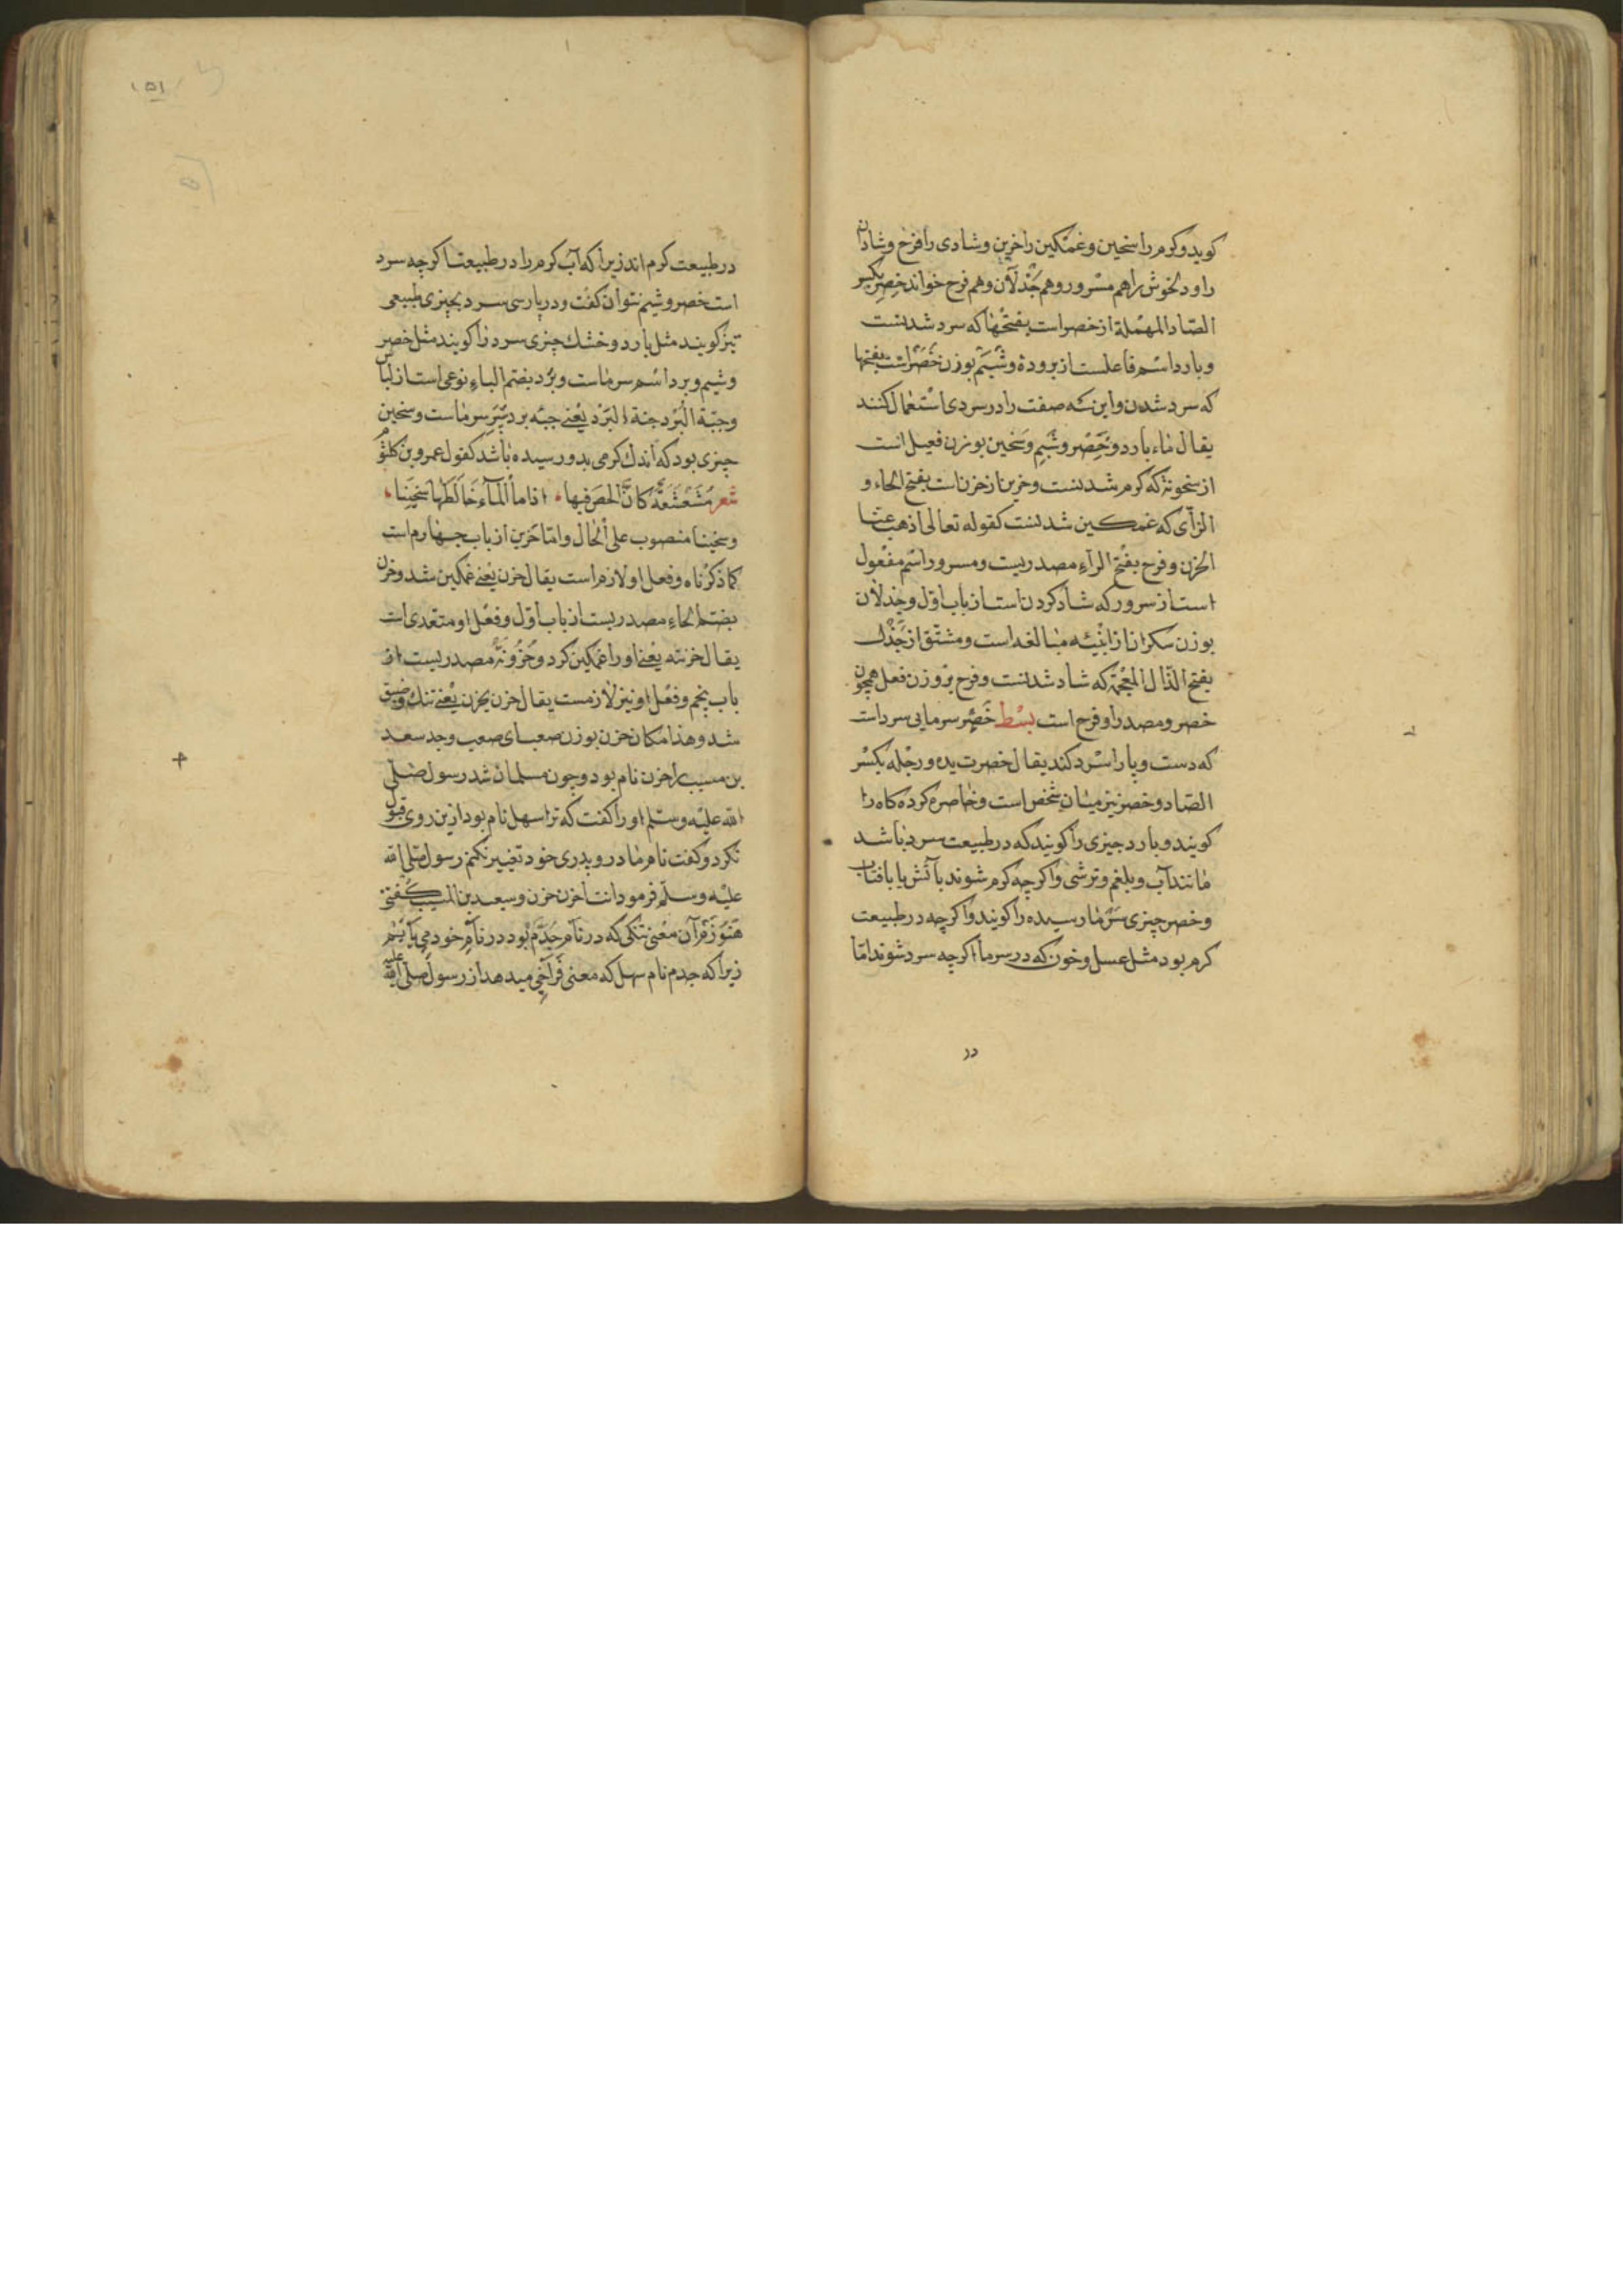 کوید و کرم را سخین و غمکین را حزین و شادی را فرح و شادان
را و دلخوش را هم مسرور و هم جَذْلان و هم فرح خوانند خصِر بکسر
الصّاد المهْملة از خصر است بفتحْها که سرد شدنست
و بارد اسْم فاعلست از برودة و شَبَم بوزن خَصَر است بفتحها
که سرد شدن و این سه صفت را در سردی اسْتعْمال کنند
یقال ماء بارد و خَصِر و شَبِم و سَخین بوزن فعیل است
از سخونة که کرم شدنست و حزین از حزن است بفتح الحاء و
الزآی که غمکین شدنست کقوله تعالی اذهب عنا
الحزن و فرح بفتْح الرآء مصدریست و مسرور اسْم مفْعول
است از سرور که شاد کردن است از باب اوّل و جذلان
بوزن سکران از ابْنیه مبالغه است و مشتق از جَذَل
بفتح الذّال المعْجَمة که شاد شدنست و فرح بر وزن فعل همچون
خصر و مصدر او فرح است بسْط خَصَر سرمایی سرد است
که دست و پا را سرْد کند یقال خصرت یده و رجْله بکسْر
الصّاد و خصر نیز میان شخص است و خاصره کرده کاه را
کویند و بارد چیزی را کویند که در طبیعت سرد باشد
مانند آب و بلغم و ترشی و اکرچه کرم شوند بآتش یا بافتاب
و خصر چیزی سَرْما رسیده را کویند و اکرچه در طبیعت
کرم بود مثل عسل و خون که در سرما اکرچه سرد شوند امّا
در
۱۵۱
در طبیعت کرم اند زیرا که آب کرم را در طبیعت اکرچه سرد
است خصر و شبم نتوان کفت و در پارسی سرد بچیزی طبیعی
نیز کویند مثل بارد و خشک چیزی سرد را کویند مثل خصر
و شبم و برد اسْم سرماست و بُرْد بضم الباء نوعی است از لباس
و جبّة البُرد جنة البَرْد یعْنی جبّه برد سپر سرماست و سخین
چیزی بود که اندک کرمی بدو رسیده باشد کقول عمرو بن کلثوم
شعر مُشَعْشَعَةً کانّ الحصّ فیها ؞ اذا ما المآء خَالَطَهَا سَخِینا ؞
و سخینا منصوب علی الحال و امّا حَزین از باب چهارم است
کما ذکرْناه و فعل او لازم است یقال حزن یعْنی غمکین شد و حزن
بضم الحاء مصدریست از باب اوّل و فعْل او متعدی است
یقال حزنته یعْنی او را غمکین کرد و حُزُونَة مصدریست از
باب پنجم و فعْل او نیز لازمست یقال حزن یحزن یعْنی تنک و ضیق
شد و هذا مکان حزن بوزن صعب ای صعب و جد سعید
بن مسیب را حزن نام بود و چون مسلمان شد رسول صلی
الله علیْه و سلّم او را کفت که ترا سهل نام بود ازین روی قبول
نکرد و کفت نام مادر و پدری خود تغییر نکنم رسول صلی الله
علیْه و سلّم فرمود انت احزن حزن و سعید بن المسیب کفتی
هَنُوز مَرْ آن معْنی تنکی که در نام جَدّم بود در نام خود می یابیم
زیرا که جدم نام سهل که معنی فراخی میدهد از رسول صلی الله علیه